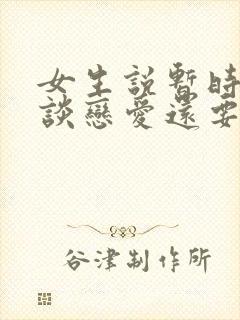 女生說暫時
談戀愛還要
谷津制作所